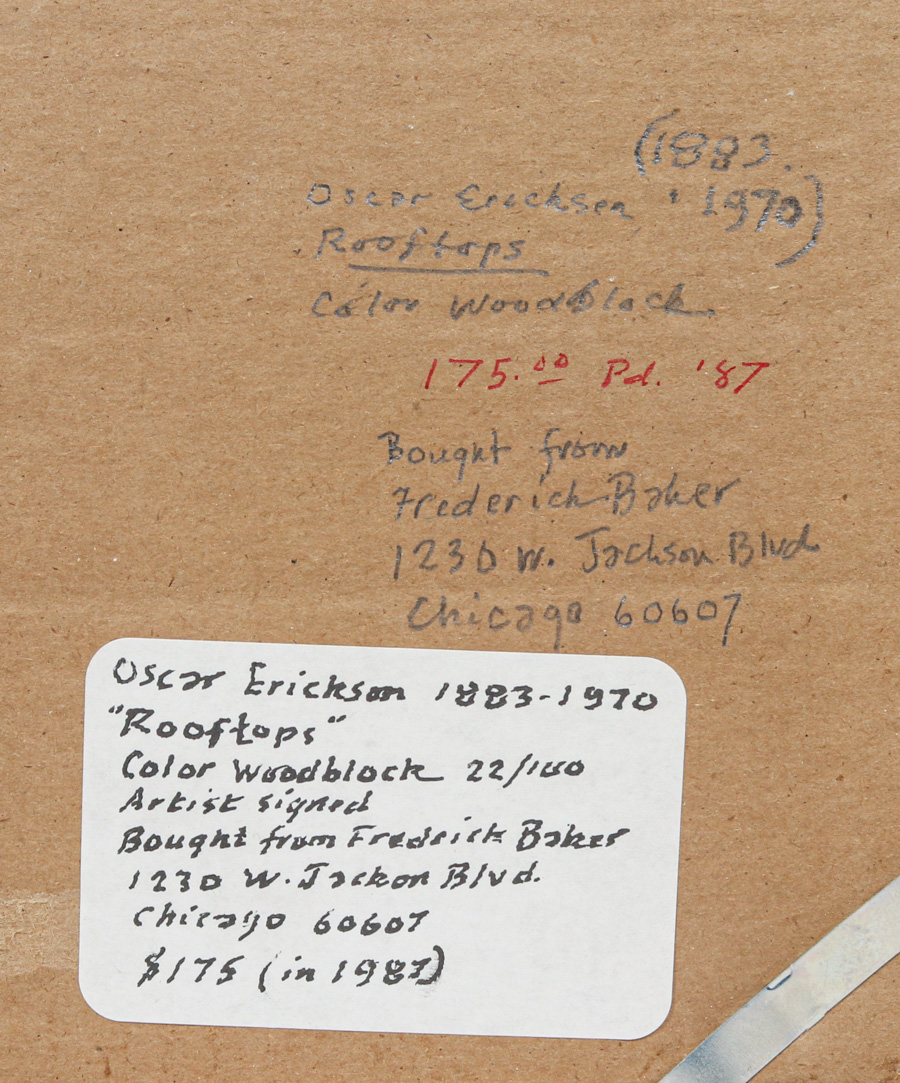 (1883.
Oscar Erickson ' 1970)
Rooftops
Color Woodblock
175.00 Pd. '87
Bought from
Frederick Baker
1230 W. Jackson Blvd
Chicago 60607
Oscar Erickson 1883-1970
"Rooftops"
Color Woodblock 22/100
Artist signed
Bought from Fredrick Baker
1230 W. Jackon Blvd.
Chicago 60607
$175 (in 1987)